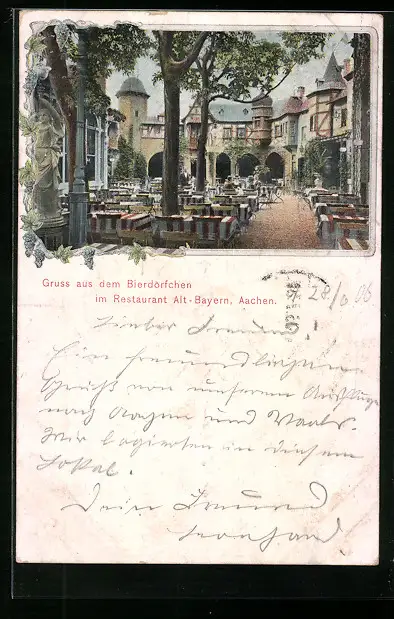 Gruss aus dem Bierdörfchen
im Restaurant Alt-Bayern, Aachen.
28/6 06
Lieber Freund
Ein freundlichen
Gruß von unserem Ausfluge
nach Aachen und Vaals.
Wir logierten in diesem
Lokal.
Dein Freund